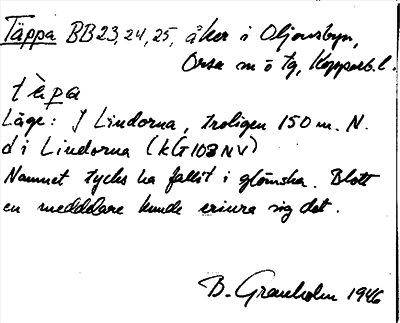 Täppa BB23, 24, 25, åker i Oljonsbyn,
Orsa sn o tg, Kopparb. l.
tɛ̀pa
Läge: I Lindorna, troligen 150 m. N.
d i Lindorna (KG103NV)
Namnet tycks ha fallit i glömska. Blott
en meddelare kunde erinra sig det.
B. Granholm 1946